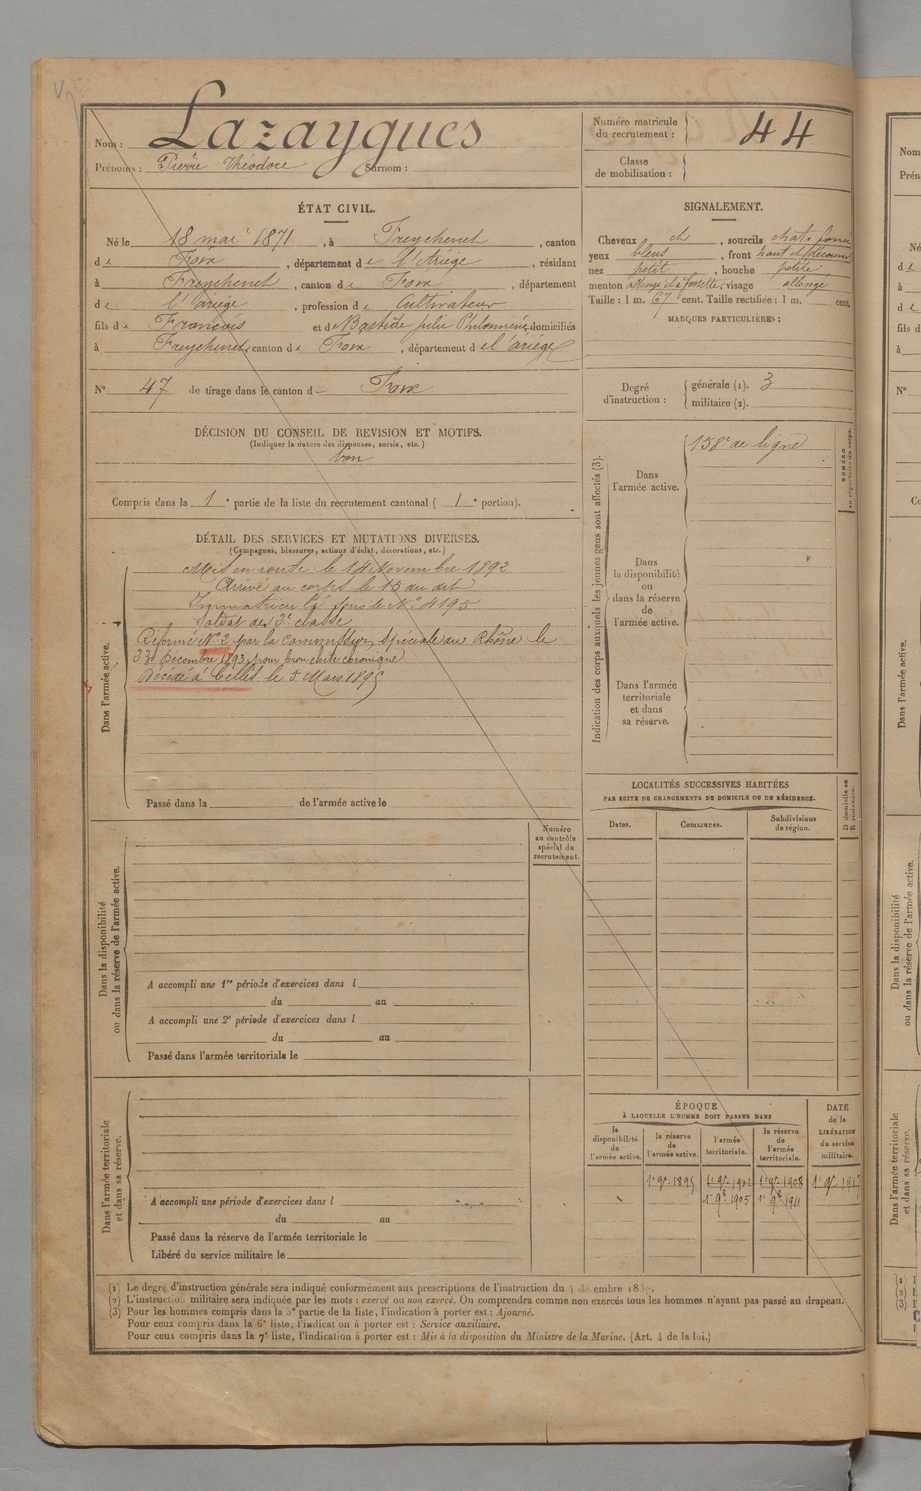 Nom : Lazaygues
Prénoms : Pierre Théodore Surnom :
Numéro matricule du recrutement : 44
Classe de mobilisation :
ÉTAT CIVIL.
Né le 18 mai 1871, à Freychenet, canton
de Foix, département de l'Ariège, résidant
à Freychenet, canton de Foix, département
de l'Ariège, profession de Cultivateur
fils de François et de Bastide Julie Philomène, domiciliés
à Freychenet, canton de Foix, département de l'Ariège
N° 47 de tirage dans le canton d Foix
SIGNALEMENT.
Cheveux ch, sourcils chat. foncé
yeux bleus, front haut et découvert
nez petit, bouche petite,
menton allongé et à fossette, visage allongé
Taille : 1 m. 67 cent. Taille rectifiée : 1 m. cent.
MARQUES PARTICULIÈRES :
Degré d'instruction : générale (1). 3
militaire (2).
DÉCISION DU CONSEIL DE REVISION ET MOTIFS.
(Indiquer la nature des dispenses, sursis, etc.)
bon
Compris dans la 1e partie de la liste du recrutement cantonal ( 1e portion).
DÉTAIL DES SERVICES ET MUTATIONS DIVERSES.
(Campagnes, blessures, actions d'éclat, décorations, etc.)
Dans l'armée active.
Mis en route le 14 Novembre 1892
Arrivé au corps le 15 du dit
Immatriculé sous le N° 4195
Soldat de 2e classe
Réformé N° 2 par la commission spéciale du Rhône le
décembre 1893 pour bronchite chronique
Décédé à Celles le 5 Mars 1895
Passé dans la de l'armée active le
Indication des corps auxquels les jeunes gens sont affectés (3).
Dans l'armée active. 158e de ligne
NUMÉRO au répertoire du corps.
Dans la disponibilité ou dans la réserve de l'armée active.
Dans l'armée territoriale et dans sa réserve.
LOCALITÉS SUCCESSIVES HABITÉES
PAR SUITE DE CHANGEMENTS DE DOMICILE OU DE RÉSIDENCE.
Dates. Communes. Subdivisions de région. D domicile ou R résidence.
Dans la disponibilité ou dans la réserve de l'armée active.
Numéro au contrôle spécial du recrutement.
A accompli une 1re période d'exercices dans l
du au
A accompli une 2e période d'exercices dans l
du au
Passé dans l'armée territoriale le
Dans l'armée territoriale et dans sa réserve.
A accompli une période d'exercices dans l
du au
Passé dans la réserve de l'armée territoriale le
Libéré du service militaire le
ÉPOQUE
À LAQUELLE L'HOMME DOIT PASSER DANS
DATE de la LIBÉRATION du service militaire.
la disponibilité de l'armée active. la réserve de l'armée active. l'armée territoriale. la réserve de l'armée territoriale.
1er 9bre 1895 1er 9bre 1902 1er 9bre 1908 1er 9bre
1er 9bre 1905 1er 9bre 1911
(1) Le degré d'instruction générale sera indiqué conformément aux prescriptions de l'instruction du 4 décembre
(2) L'instruction militaire sera indiquée par les mots : exercé ou non exercé. On comprendra comme non exercés tous les hommes n'ayant pas passé au drapeau.
(3) Pour les hommes compris dans la 5e partie de la liste, l'indication à porter est : Ajourné.
Pour ceux compris dans la 6e liste, l'indication à porter est : Service auxiliaire.
Pour ceux compris dans la 7e liste, l'indication à porter est : Mis à la disposition du Ministre de la Marine. (Art. 4 de la loi.)